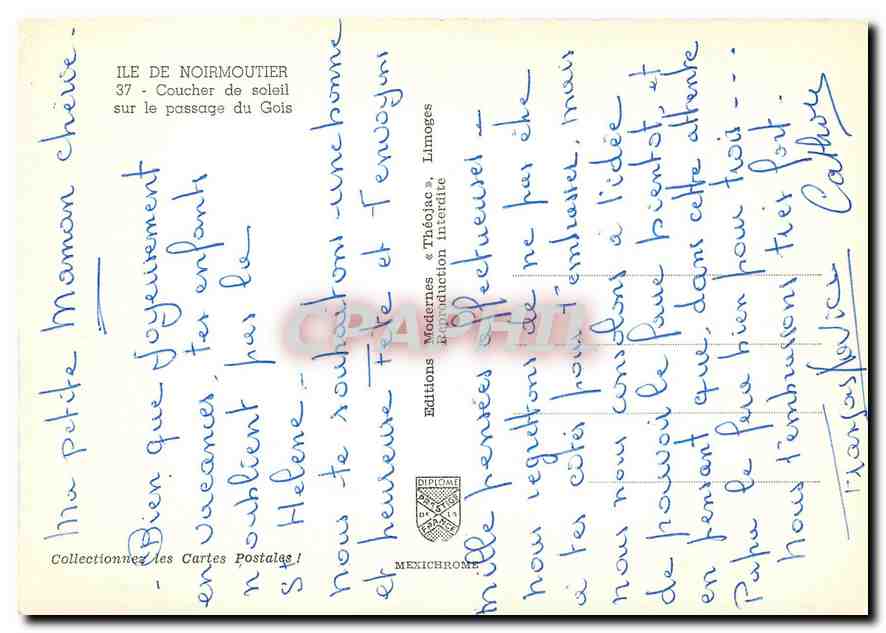 ILE DE NOIRMOUTIER
37 - Coucher de soleil
sur le passage du Gois
Ma petite Maman chérie -
- Bien que joyeusement
en vacances, tes enfants
n'oublient pas la
St Hélène -
nous te souhaitons une bonne
et heureuse fête et t'envoyons
mille pensées affectueuses -
nous regrettons de ne pas être
à tes côtés pour t'embrasser, mais
nous nous consolons à l'idée
de pouvoir le faire bientôt, et
en pensant que, dans cette attente
Papa le fera bien pour trois - - -
Nous t'embrassons très fort.
Cathou
Editions Modernes « Théojac », Limoges
Reproduction interdite
DIPLOME
PRESTIGE
DE LA
FRANCE
MEXICHROME
Collectionnez les Cartes Postales !
CPAPHIL